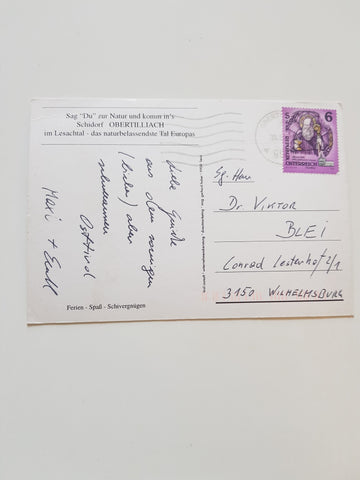 Sag "Du" zur Natur und komm in's
Schidorf OBERTILLIACH
im Lesachtal - das naturbelassendste Tal Europas
Liebe Grüße
aus dem sonnigen
(kalten) aber
Osttirol
Mari +
Ferien - Spaß - Schivergnügen
6
ÖSTERREICH
Sg. Herr
Dr. VIKTOR
BLEI
Conrad Lesterhof 2/1
3150 WILHELMSBURG